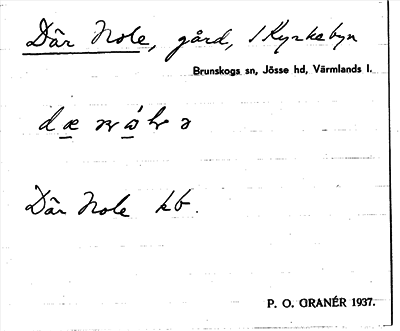 Där Nole, gård, / Kyrkebyn
Brunskogs sn, Jösse hd, Värmlands l.
Där Nole kb.
P. O. GRANÉR 1937.